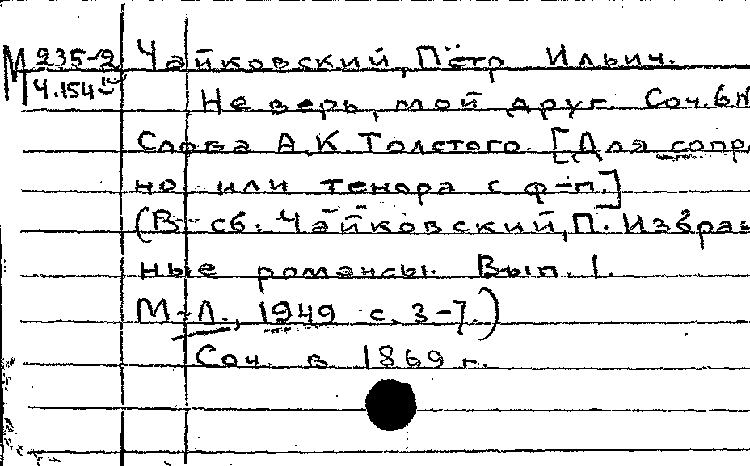 М 235-2 Чайковский, Пётр Ильич.
Ч.154 Не верь, мой друг. Соч. 6 N
Слова А.К. Толстого. [Для сопра
но или тенора с ф-п.]
(В сб. Чайковский, П. Избран
ные романсы. Вып. 1.
М-Л., 1949 с. 3-7.)
Соч. в 1869 г.